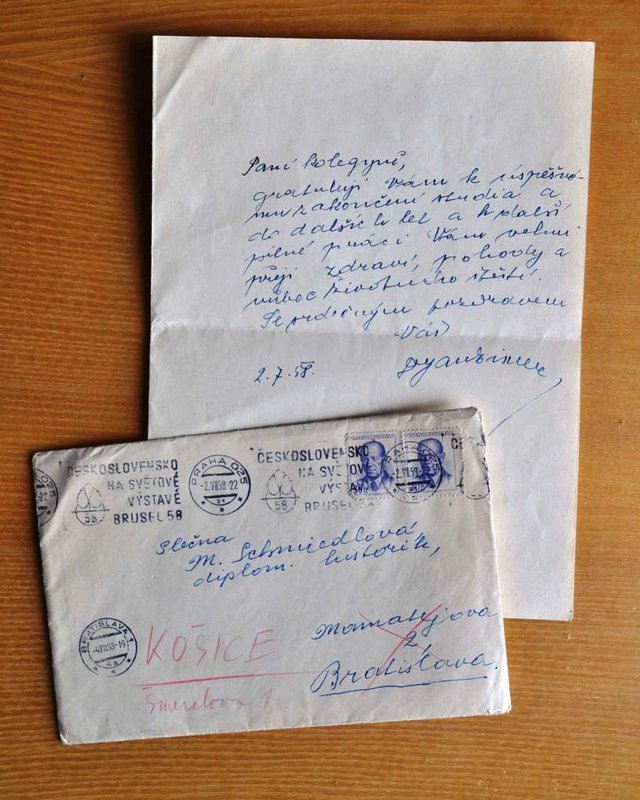 Paní kolegyně,
gratuluji Vám k úspěšné-
mu zakončení studia a
do dalších let a k další
pilné práci Vám velmi
přeji zdraví, pohody a
vůbec životního štěstí.
Se srdečným pozdravem
Váš
2.7.58.
ČESKOSLOVENSKO
NA SVĚTOVÉ
VÝSTAVĚ
BRUSEL 58
58
PRAHA 025
-2.VII.58-22
ČESKOSLOVENSKO
NA SVĚTOVÉ
VÝSTAVĚ
BRUSEL
58
Slečna
M. Schmiedlová,
diplom. historik,
BRATISLAVA 1
4a
KOŠICE
2
Bratislava